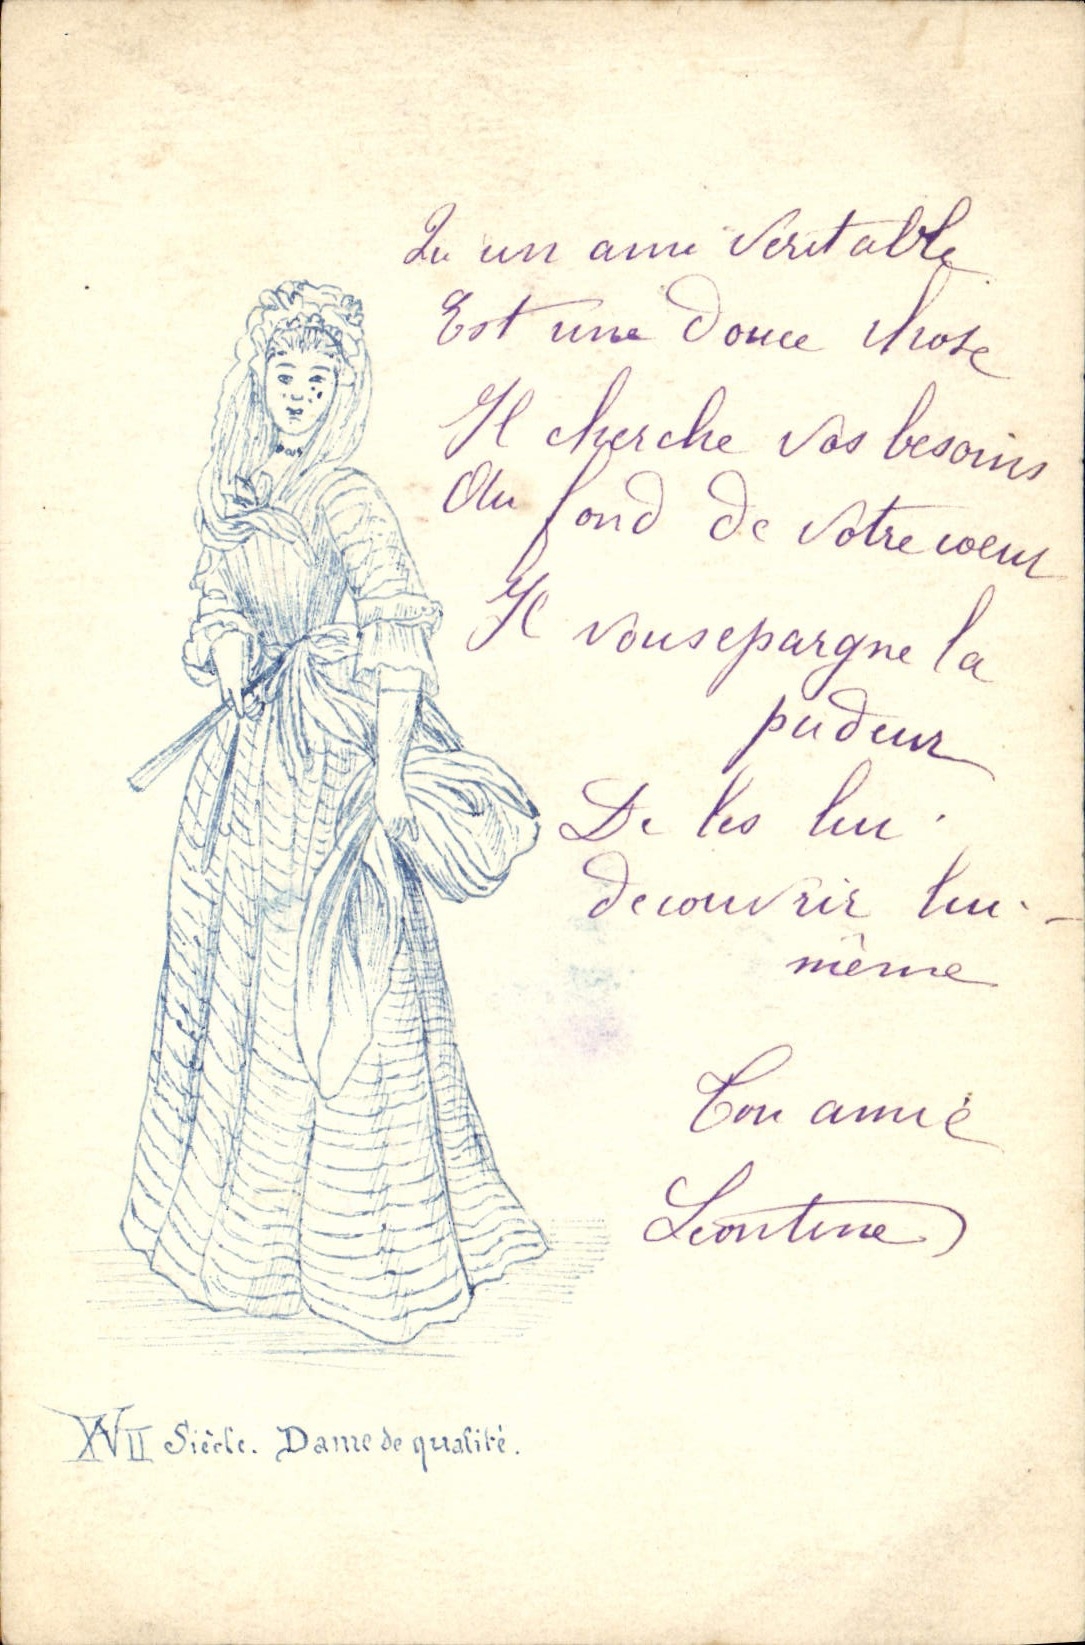 Qu un ami veritable
Est une douce chose
Il cherche vos besoins
Au fond de votre coeur
Il vous epargne la
pudeur
De les lui
decouvrir lui-
même
Ton amie
Leontine
XVII Siècle. Dame de qualité.